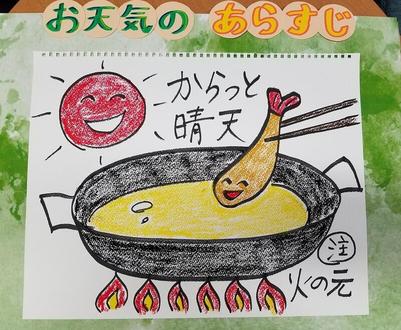 お天気の あらすじ
からっと
晴天
注
火の元